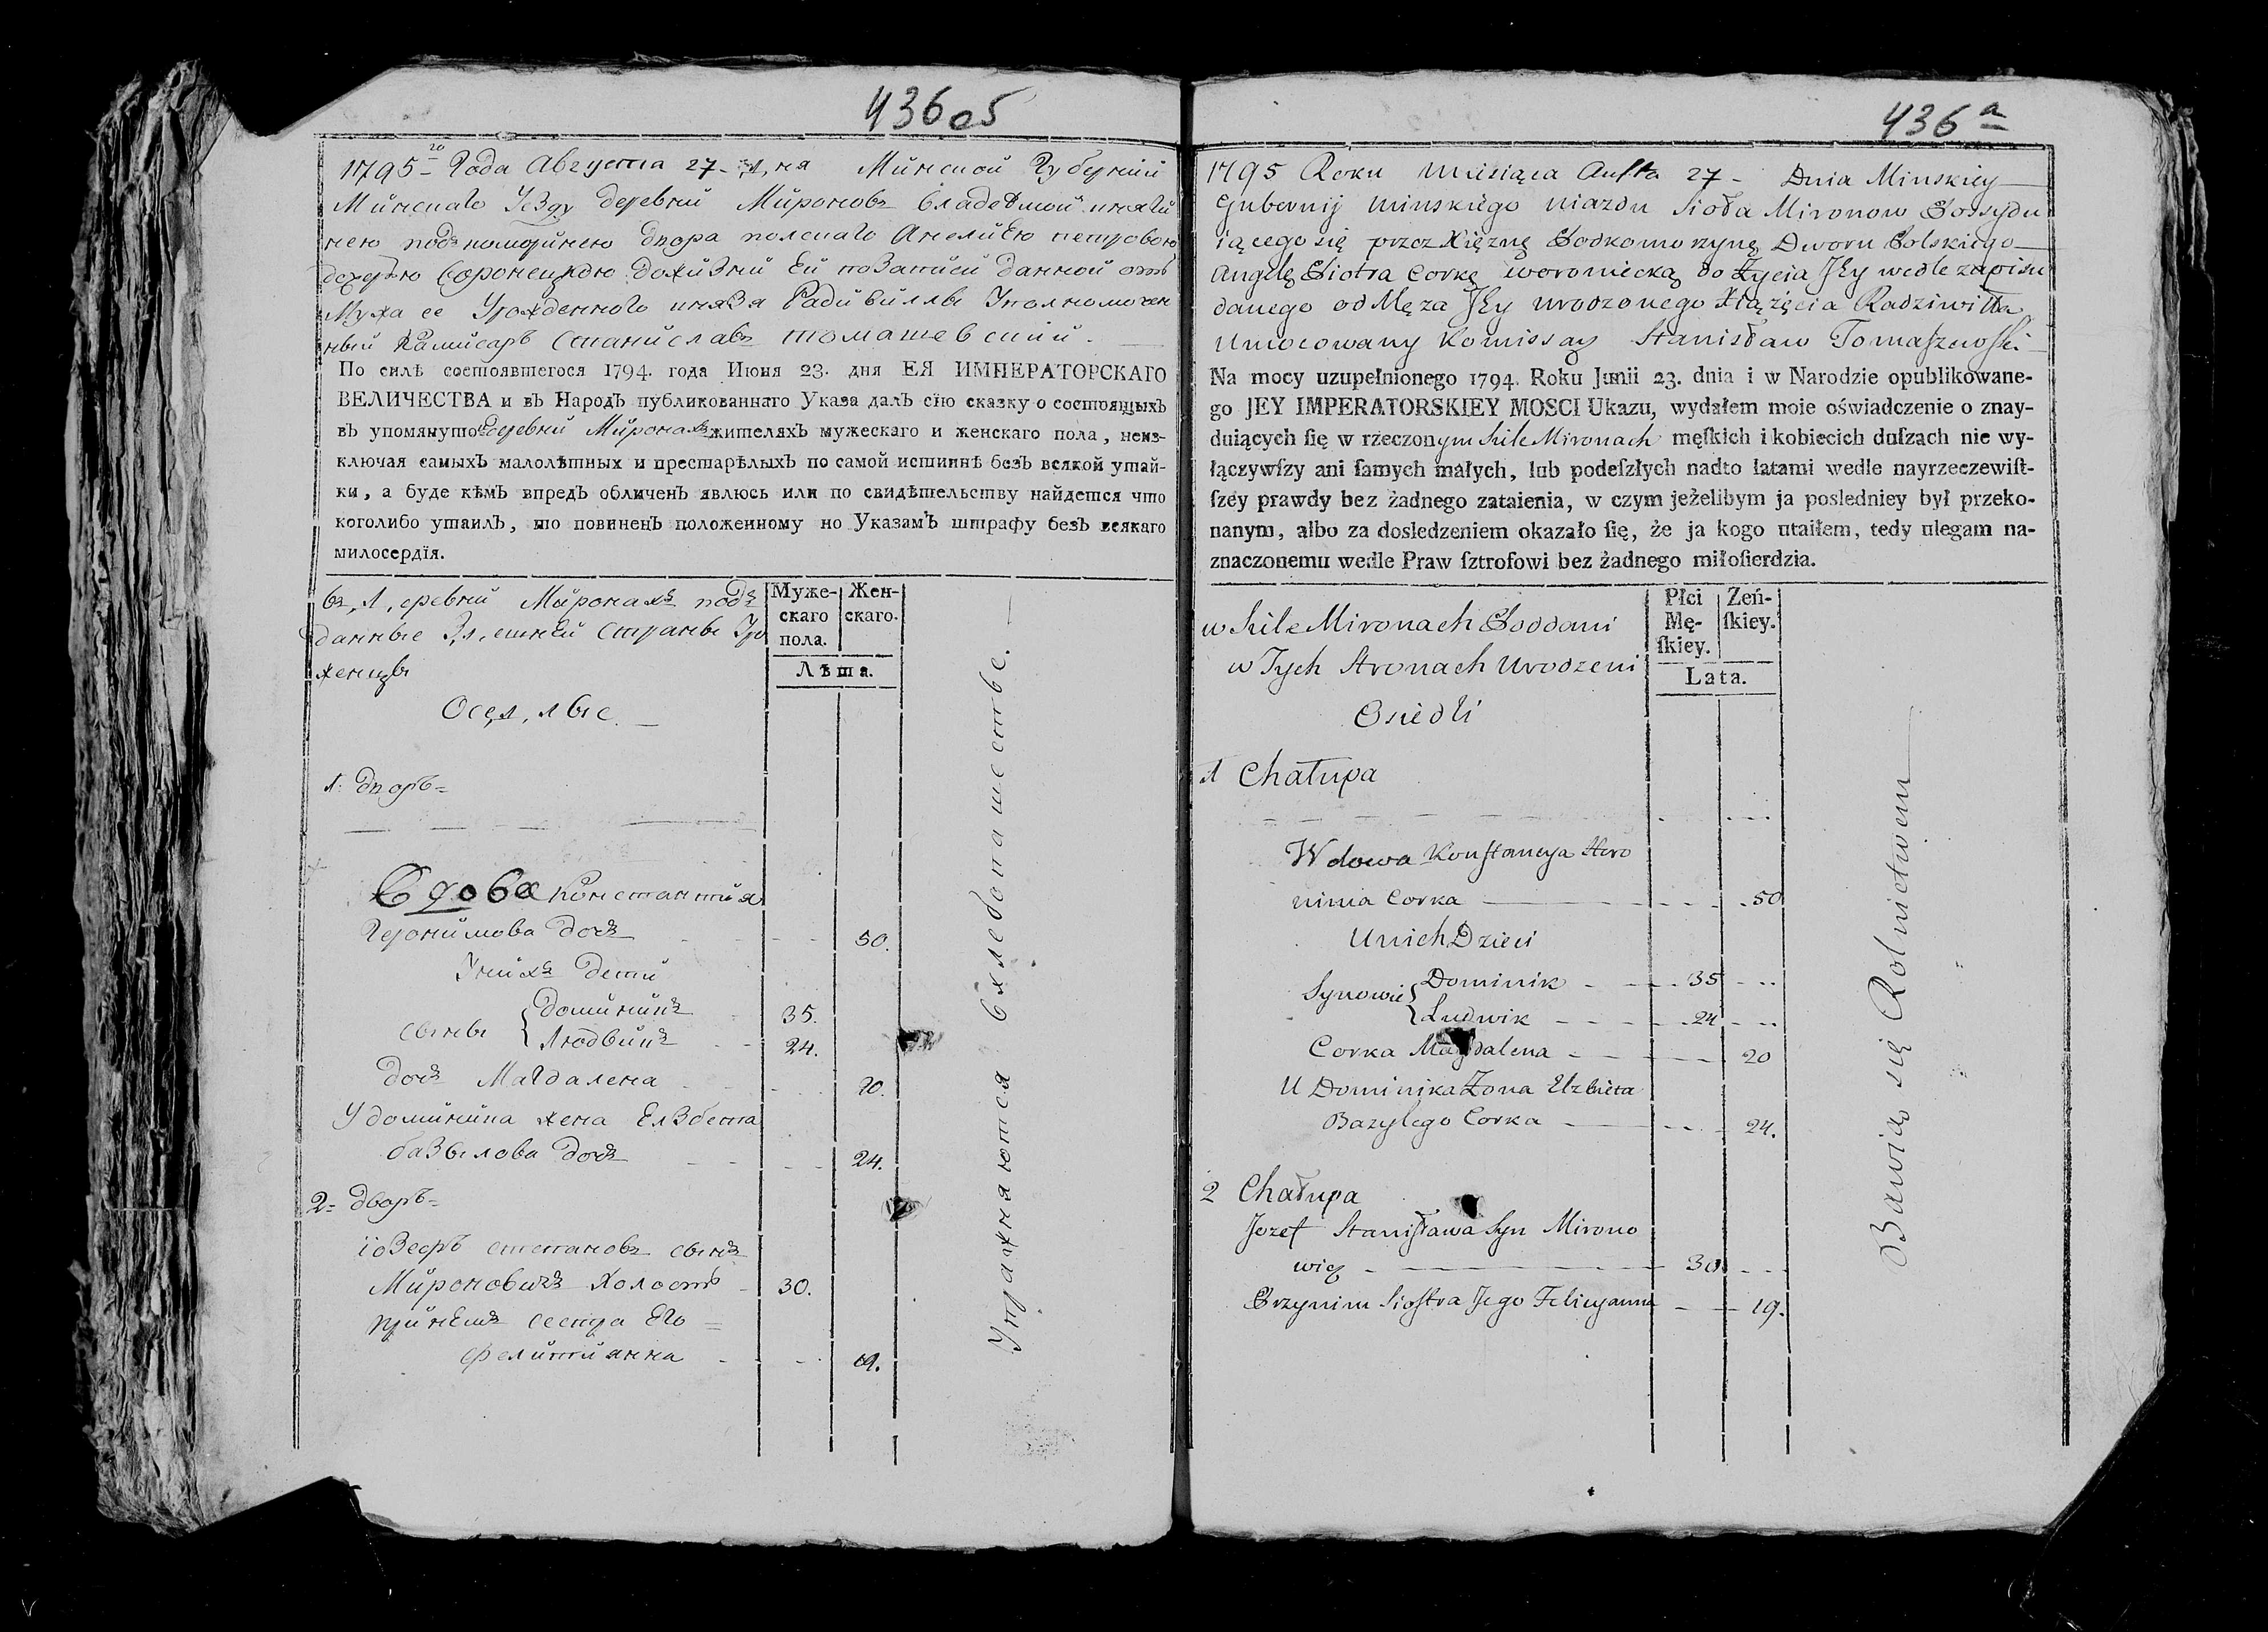 436об
1795го Года Августа 27 дня Минской Губернїи
Минскаго Уезду деревни Миронов владеемой княги
нею подкоморинею двора полскаго Анелиею петровою
дочерью Воронецкою дохизни Ей позаписи данной отъ
Мужа ее Урожденного князя Радивиллы Уполномочен
ный Камисаръ Станиславъ томашевский.
По силѣ состоявшегося 1794. года Июня 23. дня ЕЯ ИМПЕРАТОРСКАГО
ВЕЛИЧЕСТВА и въ Народъ публикованнаго Указа далъ сїю сказку о состоящыхъ
въ упомянутой деревни Миронахъ жителяхъ мужескаго и женскаго пола, неиз-
ключая самыхъ малолѣтныхъ и престарѣлыхъ по самой истиннѣ безъ всякой утай-
ки, а буде кѣмъ впредъ обличенъ явлюсь или по свидѣтельству найдется что
коголибо утаилъ, то повиненъ положенному по Указамъ штрафу безъ всякаго
милосердїя.
въ деревни Миронахъ под
данные Здешней страны Уро
женцы
Оседлые
Муже-
скаго
пола.
Жен-
скаго.
Лѣта.
1: дворъ
Вдова Константия
Геронимова дочь 50.
У них дети
сыны { доминикъ 35.
Людвикъ 24.
дочь Магдалена 20.
У доминика жена Елзбета
базылова дочь 24.
2 дворъ
їозефъ степановъ сынъ
Мироновичъ Холостъ 30.
при нем сестра Его
фелицианна 19.
Упражняются в хлебопашестве.
436 а
1795 Roku Miesiąca Aufta 27 Dnia Minskiey
Gubernij Minskiego Uiazdu Sioła Mironow Possydu
iącego się przez Xiężnę Podkomorzynę Dworu Polskiego
Angelę Piotra Corkę Woroniecką do Życia Jey wedle zapisu
danego od Męża Jey urodzonego Xiążęcia Radziwiłła
Umocowany Komissarz Stanisław Tomaszewski
Na mocy uzupełnionego 1794. Roku Junii 23. dnia i w Narodzie opublikowane-
go JEY IMPERATORSKIEY MOSCI Ukazu, wydałem moie oświadczenie o znay-
duiących ſię w rzeczonym Siele Mironach męſkich i kobiecich duſzach nie wy-
łączywſzy ani ſamych małych, lub podeſzłych nadto łatami wedle nayrzeczewiſt-
ſzey prawdy bez żadnego zataienia, w czym jeżelibym ja posledniey był przeko-
nanym, albo za dosledzeniem okazało ſię, że ja kogo utaiłem, tedy ulegam na-
znaczonemu wedle Praw ſztrofowi bez żadnego miłoſierdzia.
w Siele Mironach Poddani
w Tych Stronach Urodzeni
Osiedli
Płci
Mę-
ſkiey.
Zeń-
ſkiey.
Lata.
1 Chałupa
Wdowa Konstancya Hiero
nima Corka 50
U nich Dzieci
Synowie { Dominik 35
Ludwik 24
Corka Magdalena 20
U Dominika Żona Elzbieta
Bazylego Corka 24.
2 Chałupa
Jozef Stanisława Syn Mirono
wicz 30
Przynim Siostra Jego Felicyanna 19.
Bawią się Rolnictwem